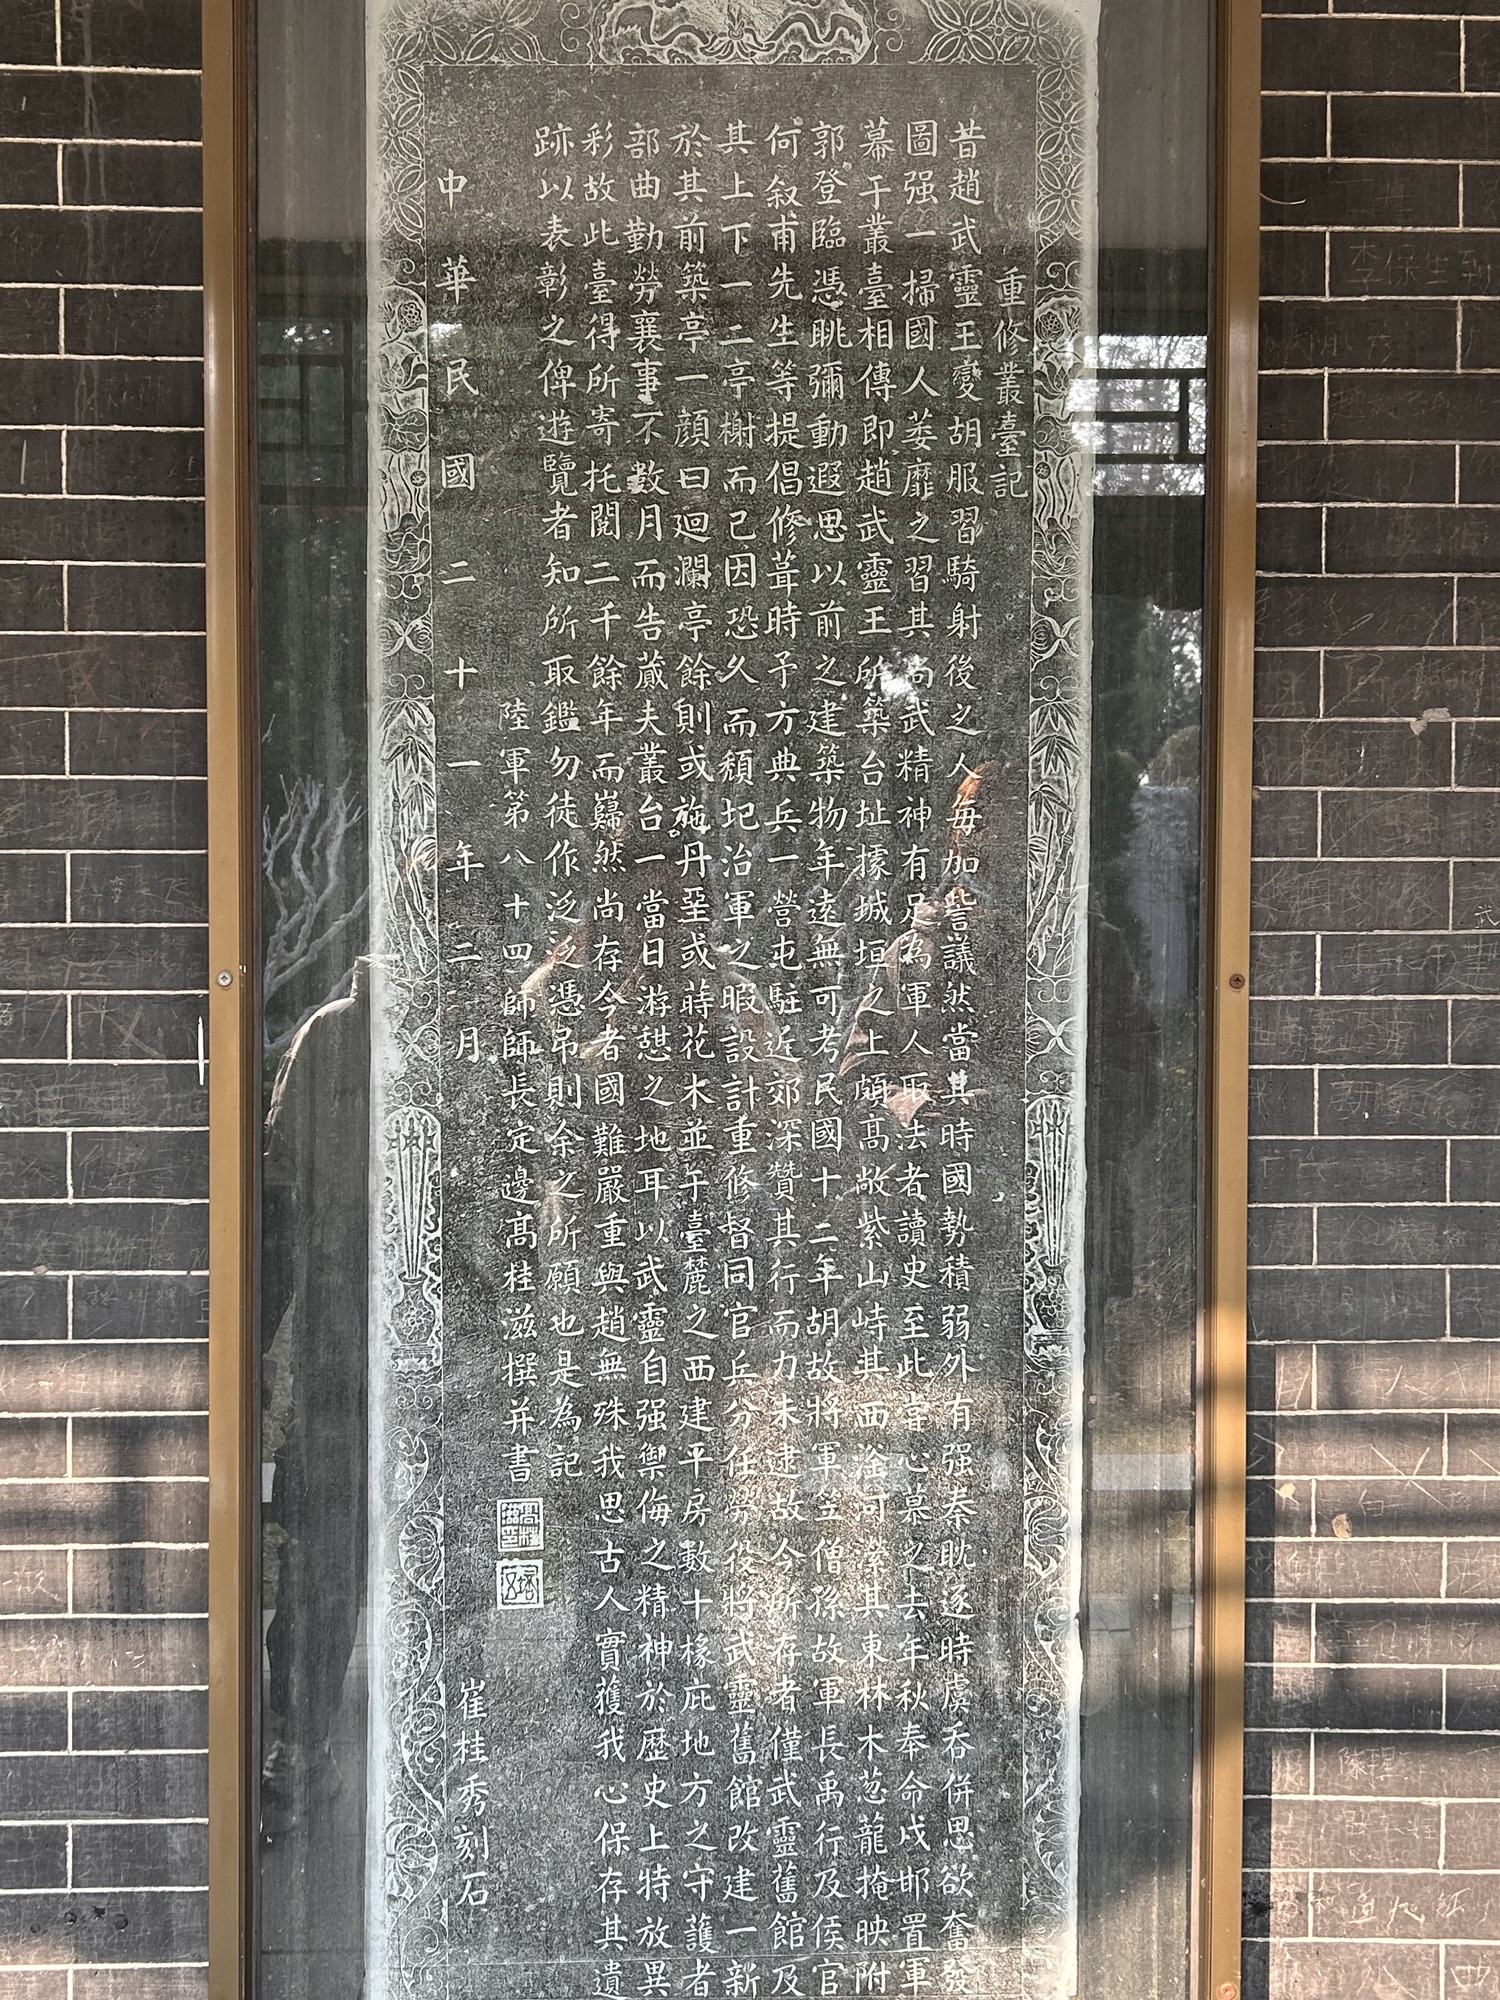 重修叢臺記
昔趙武靈王變胡服習騎射後之人每加訾議然當其時國勢積弱外有强秦眈逐時虞吞併思欲奮發
圖强一掃國人萎靡之習其尚武精神有足為軍人取法者讀史至此嘗心慕之去年秋奉命戍邯置軍
幕于叢臺相傳即趙武靈王所築台址據城垣之上頗高敞紫山峙其西滏河瀠其東林木葱蘢掩映附
郭登臨憑眺彌動遐思以前之建築物年遠無可考民國十二年胡故將軍笠僧孫故軍長禹行及侯官
何叙甫先生等提倡修葺時予方典兵一營屯駐近郊深贊其行而力未逮故今所存者僅武靈舊館及
其上下一二亭榭而已因恐久而頹圮治軍之暇設計重修督同官兵分任勞役將武靈舊館改建一新
於其前築亭一顏曰迴瀾亭餘則或施丹堊或蒔花木並於臺麓之西建平房數十椽庇地方之守護者
部曲勤勞襄事不數月而告蕆夫叢台一當日游憩之地耳以武靈自强禦侮之精神於歷史上特放異
彩故此臺得所寄托閱二千餘年而巋然尚存今者國難嚴重與趙無殊我思古人實獲我心保存其遺
跡以表彰之俾遊覽者知所取鑑勿徒作泛泛憑吊則余之所願也是為記
陸軍第八十四師師長定邊高桂滋撰并書
高桂滋印
中華民國二十一年二月
崔桂秀刻石